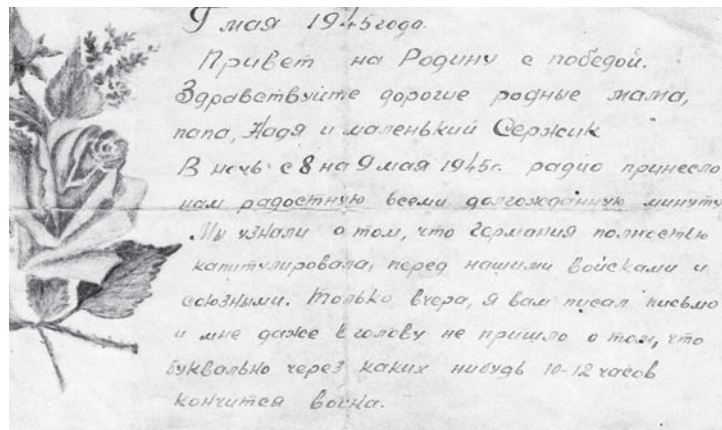 9 мая 1945 года.
Привет на Родину с победой.
Здравствуйте дорогие родные мама,
папа, Надя и маленький Сержик
В ночь с 8 на 9 мая 1945г. радио принесло
нам радостную всеми долгожданную минуту
Мы узнали о том, что Германия полностью
капитулировала, перед нашими войсками и
союзными. Только вчера, я вам писал письмо
и мне даже в голову не пришло о том, что
буквально через каких нибудь 10-12 часов
кончится война.